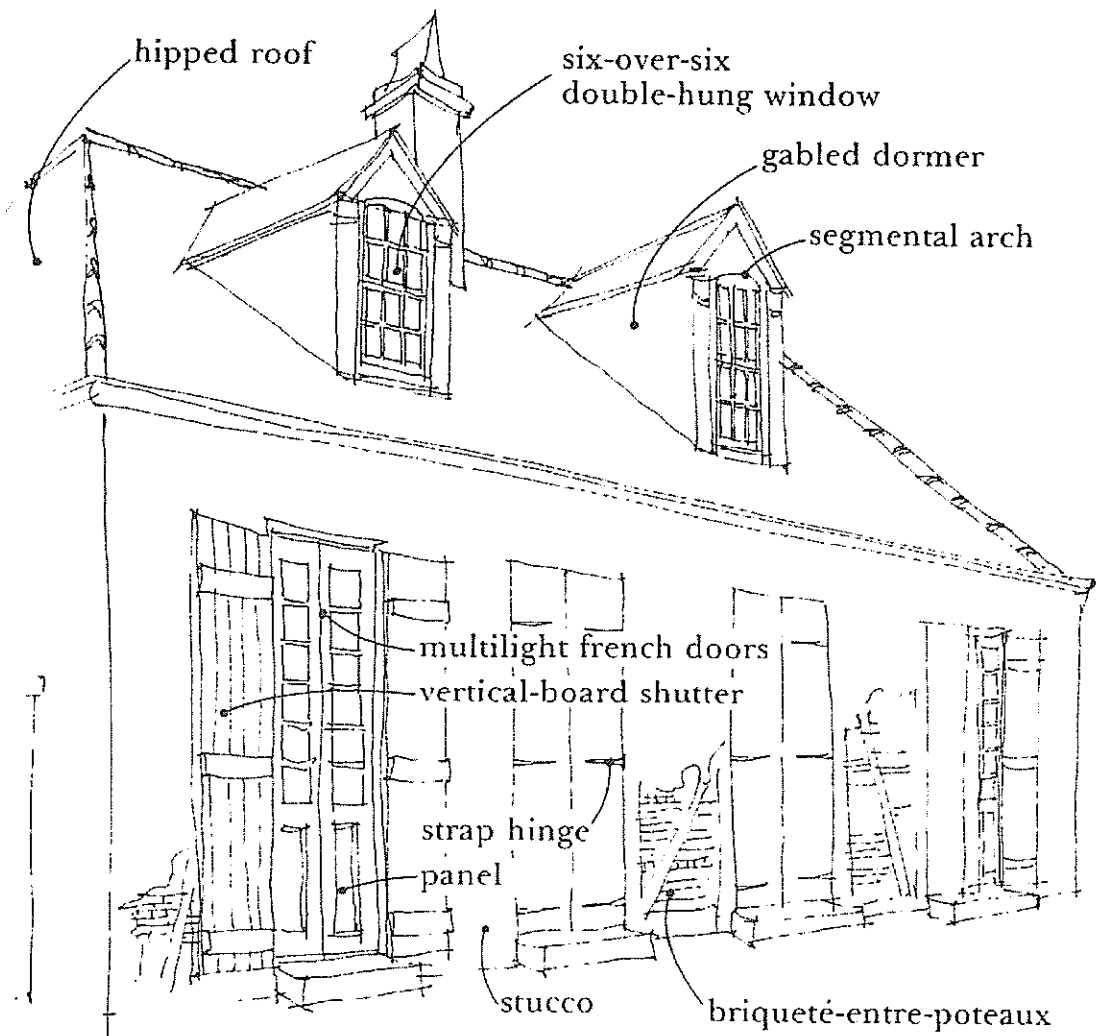 hipped roof
six-over-six
double-hung window
gabled dormer
segmental arch
multilight french doors
vertical-board shutter
strap hinge
panel
stucco
briqueté-entre-poteaux